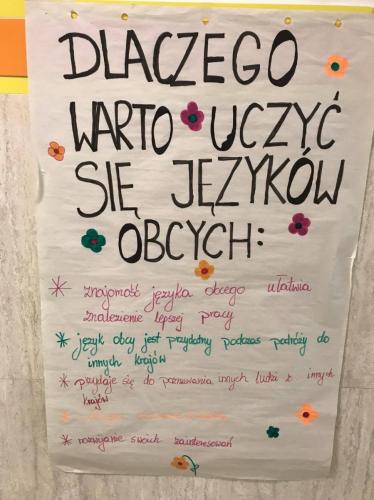 DLACZEGO
WARTO UCZYĆ
SIĘ JĘZYKÓW
OBCYCH:
* znajomość języka obcego ułatwia
znalezienie lepszej pracy
* język obcy jest przydatny podczas podróży do
innych krajów
* przydaje się do poznawania innych ludzi z innych
krajów
*
* rozwijanie swoich zainteresowań